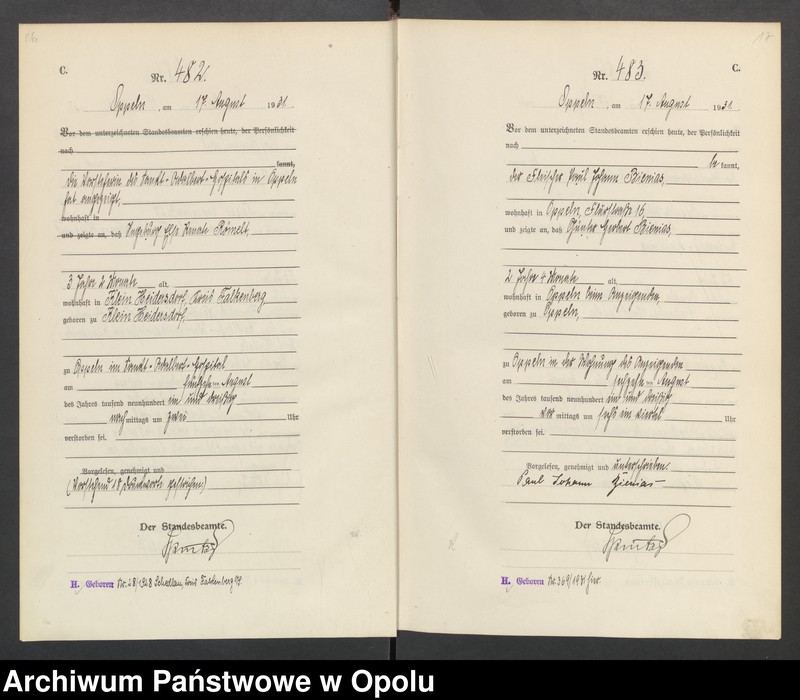 C.
Nr. 482.
Oppeln, am 17. August 1931
Vor dem unterzeichneten Standesbeamten erschien heute, der Persönlichkeit
nach
kannt,
die Vorsteherin des Sankt-Adalbert-Hospitals in Oppeln
hat angezeigt,
wohnhaft in
und zeigte an, daß Ingeburg Else Renate Römelt,
3 Jahre 2 Monate alt,
wohnhaft in Klein Heidersdorf, Kreis Falkenberg
geboren zu Klein Heidersdorf,
zu Oppeln im Sankt-Adalbert-Hospital
am fünfzehnten August
des Jahres tausend neunhundert ein und dreißig
nachmittags um zwei Uhr
verstorben sei.
Vorgelesen, genehmigt und
(Vorstehend 18 Druckworte gestrichen)
Der Standesbeamte.
H. Geboren Nr. 28/1928 Schedlau, Kreis Falkenberg
17
C.
Nr. 483.
Oppeln, am 17. August 1931
Vor dem unterzeichneten Standesbeamten erschien heute, der Persönlichkeit
nach
be kannt,
der Fleischer Paul Johann Bienias,
wohnhaft in Oppeln, Flurstraße 16,
und zeigte an, daß Günter Herbert Bienias,
2 Jahre 4 Monate alt,
wohnhaft in Oppeln beim Anzeigenden,
geboren zu Oppeln,
zu Oppeln in der Wohnung des Anzeigenden
am sechzehnten August
des Jahres tausend neunhundert ein und dreißig
vormittags um sechs ein viertel Uhr
verstorben sei.
Vorgelesen, genehmigt und unterschrieben.
Paul Johann Bienias
Der Standesbeamte.
H. Geboren Nr. 369/19
Archiwum Państwowe w Opolu